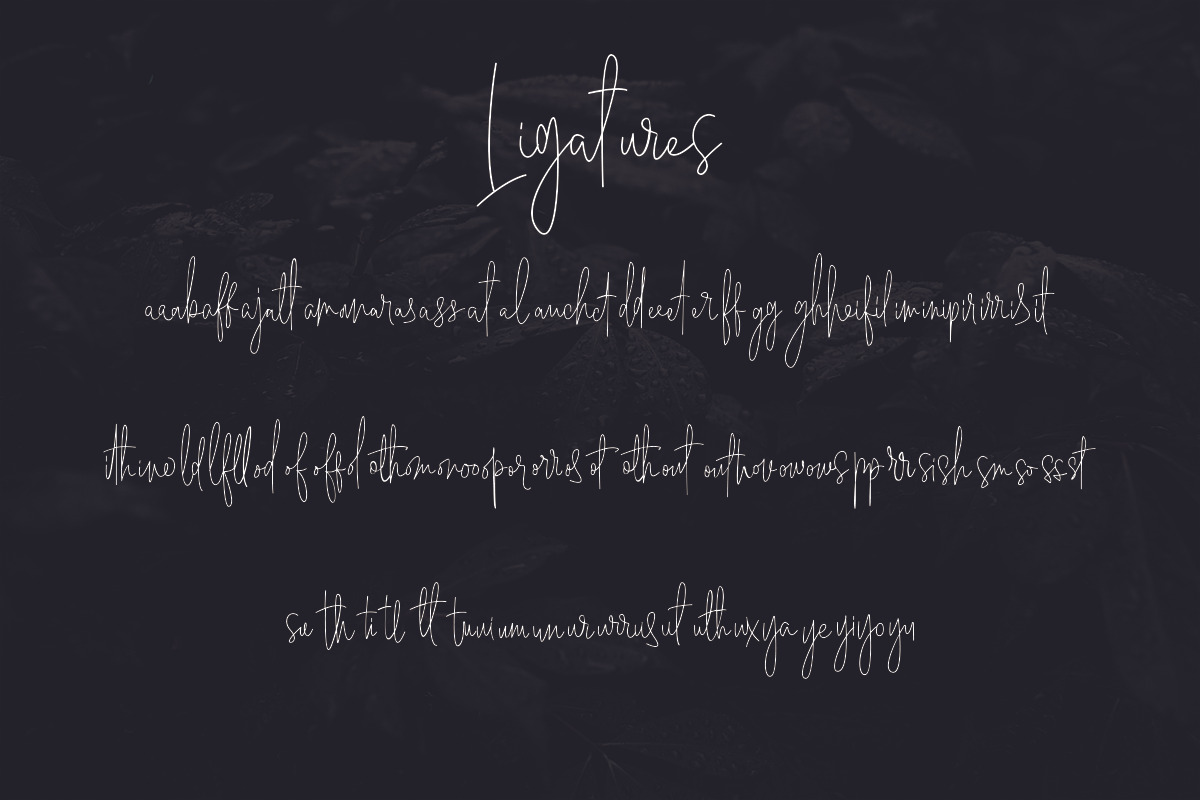 Ligatures
aaabaffajatt amanarasass at al auchct ddeeet er ff gg ghheifil iminipirirrisit
ithineldlflllod of offol othomonooopororros ot oth out outhovowows pp rr sish sm so ss st
su th ti tl tt tuuiumunururrusut uthuxya ye yiyoyu